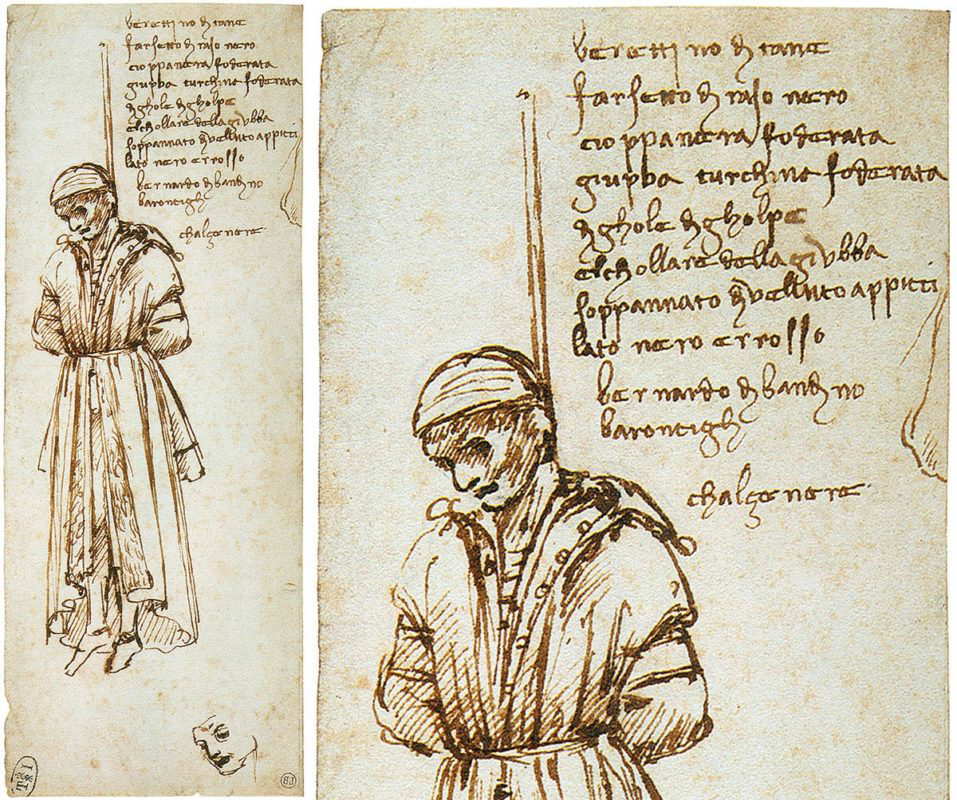 berettino di tane
farsetto di raso nero
cioppa nera foderata
giupba turchina foderata
di ghole di gholpe
elchollare della giubba
soppannato di velluto appicci
lato nero e rosso
bernardo di bandino
barontigli
chalze nere
berettino di tane
farsetto di raso nero
cioppa nera foderata
giupba turchina foderata
di ghole di gholpe
elchollare della giubba
soppannato di velluto appicci
lato nero e rosso
bernardo di bandino
barontigli
chalze nere